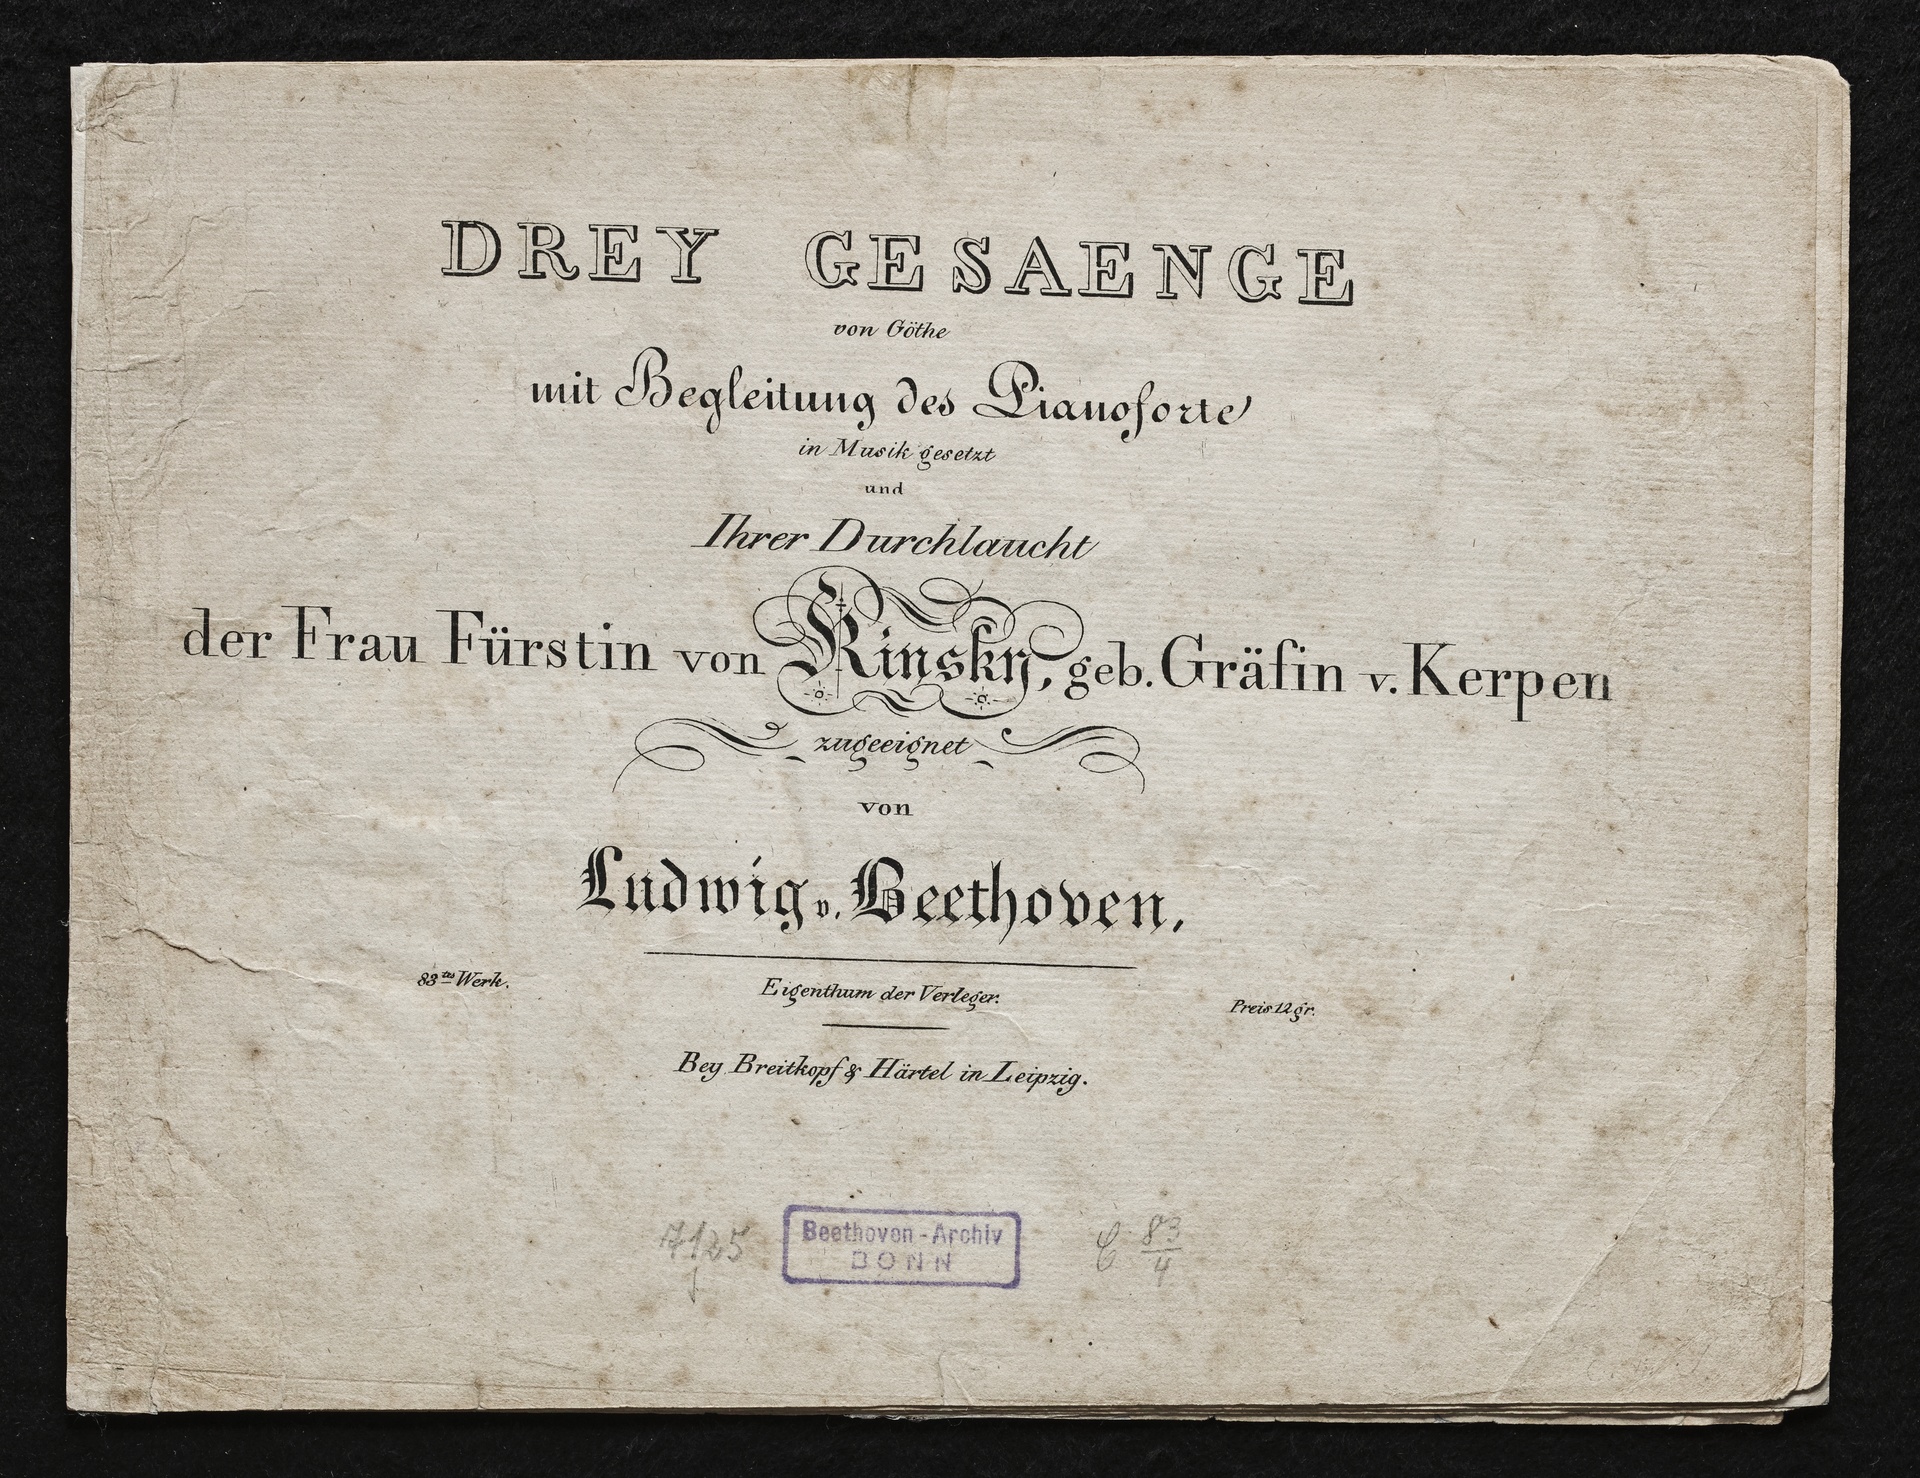 DREY GESAENGE
von Göthe
mit Begleitung des Pianoforte
in Musik gesetzt
und
Ihrer Durchlaucht
der Frau Fürstin von Kinsky, geb. Gräfin v. Kerpen
zugeeignet
von
Ludwig v. Beethoven.
83tes Werk.
Eigenthum der Verleger.
Preis 12 gr.
Bey Breitkopf & Härtel in Leipzig.
7125
Beethoven-Archiv
BONN
C 83/4